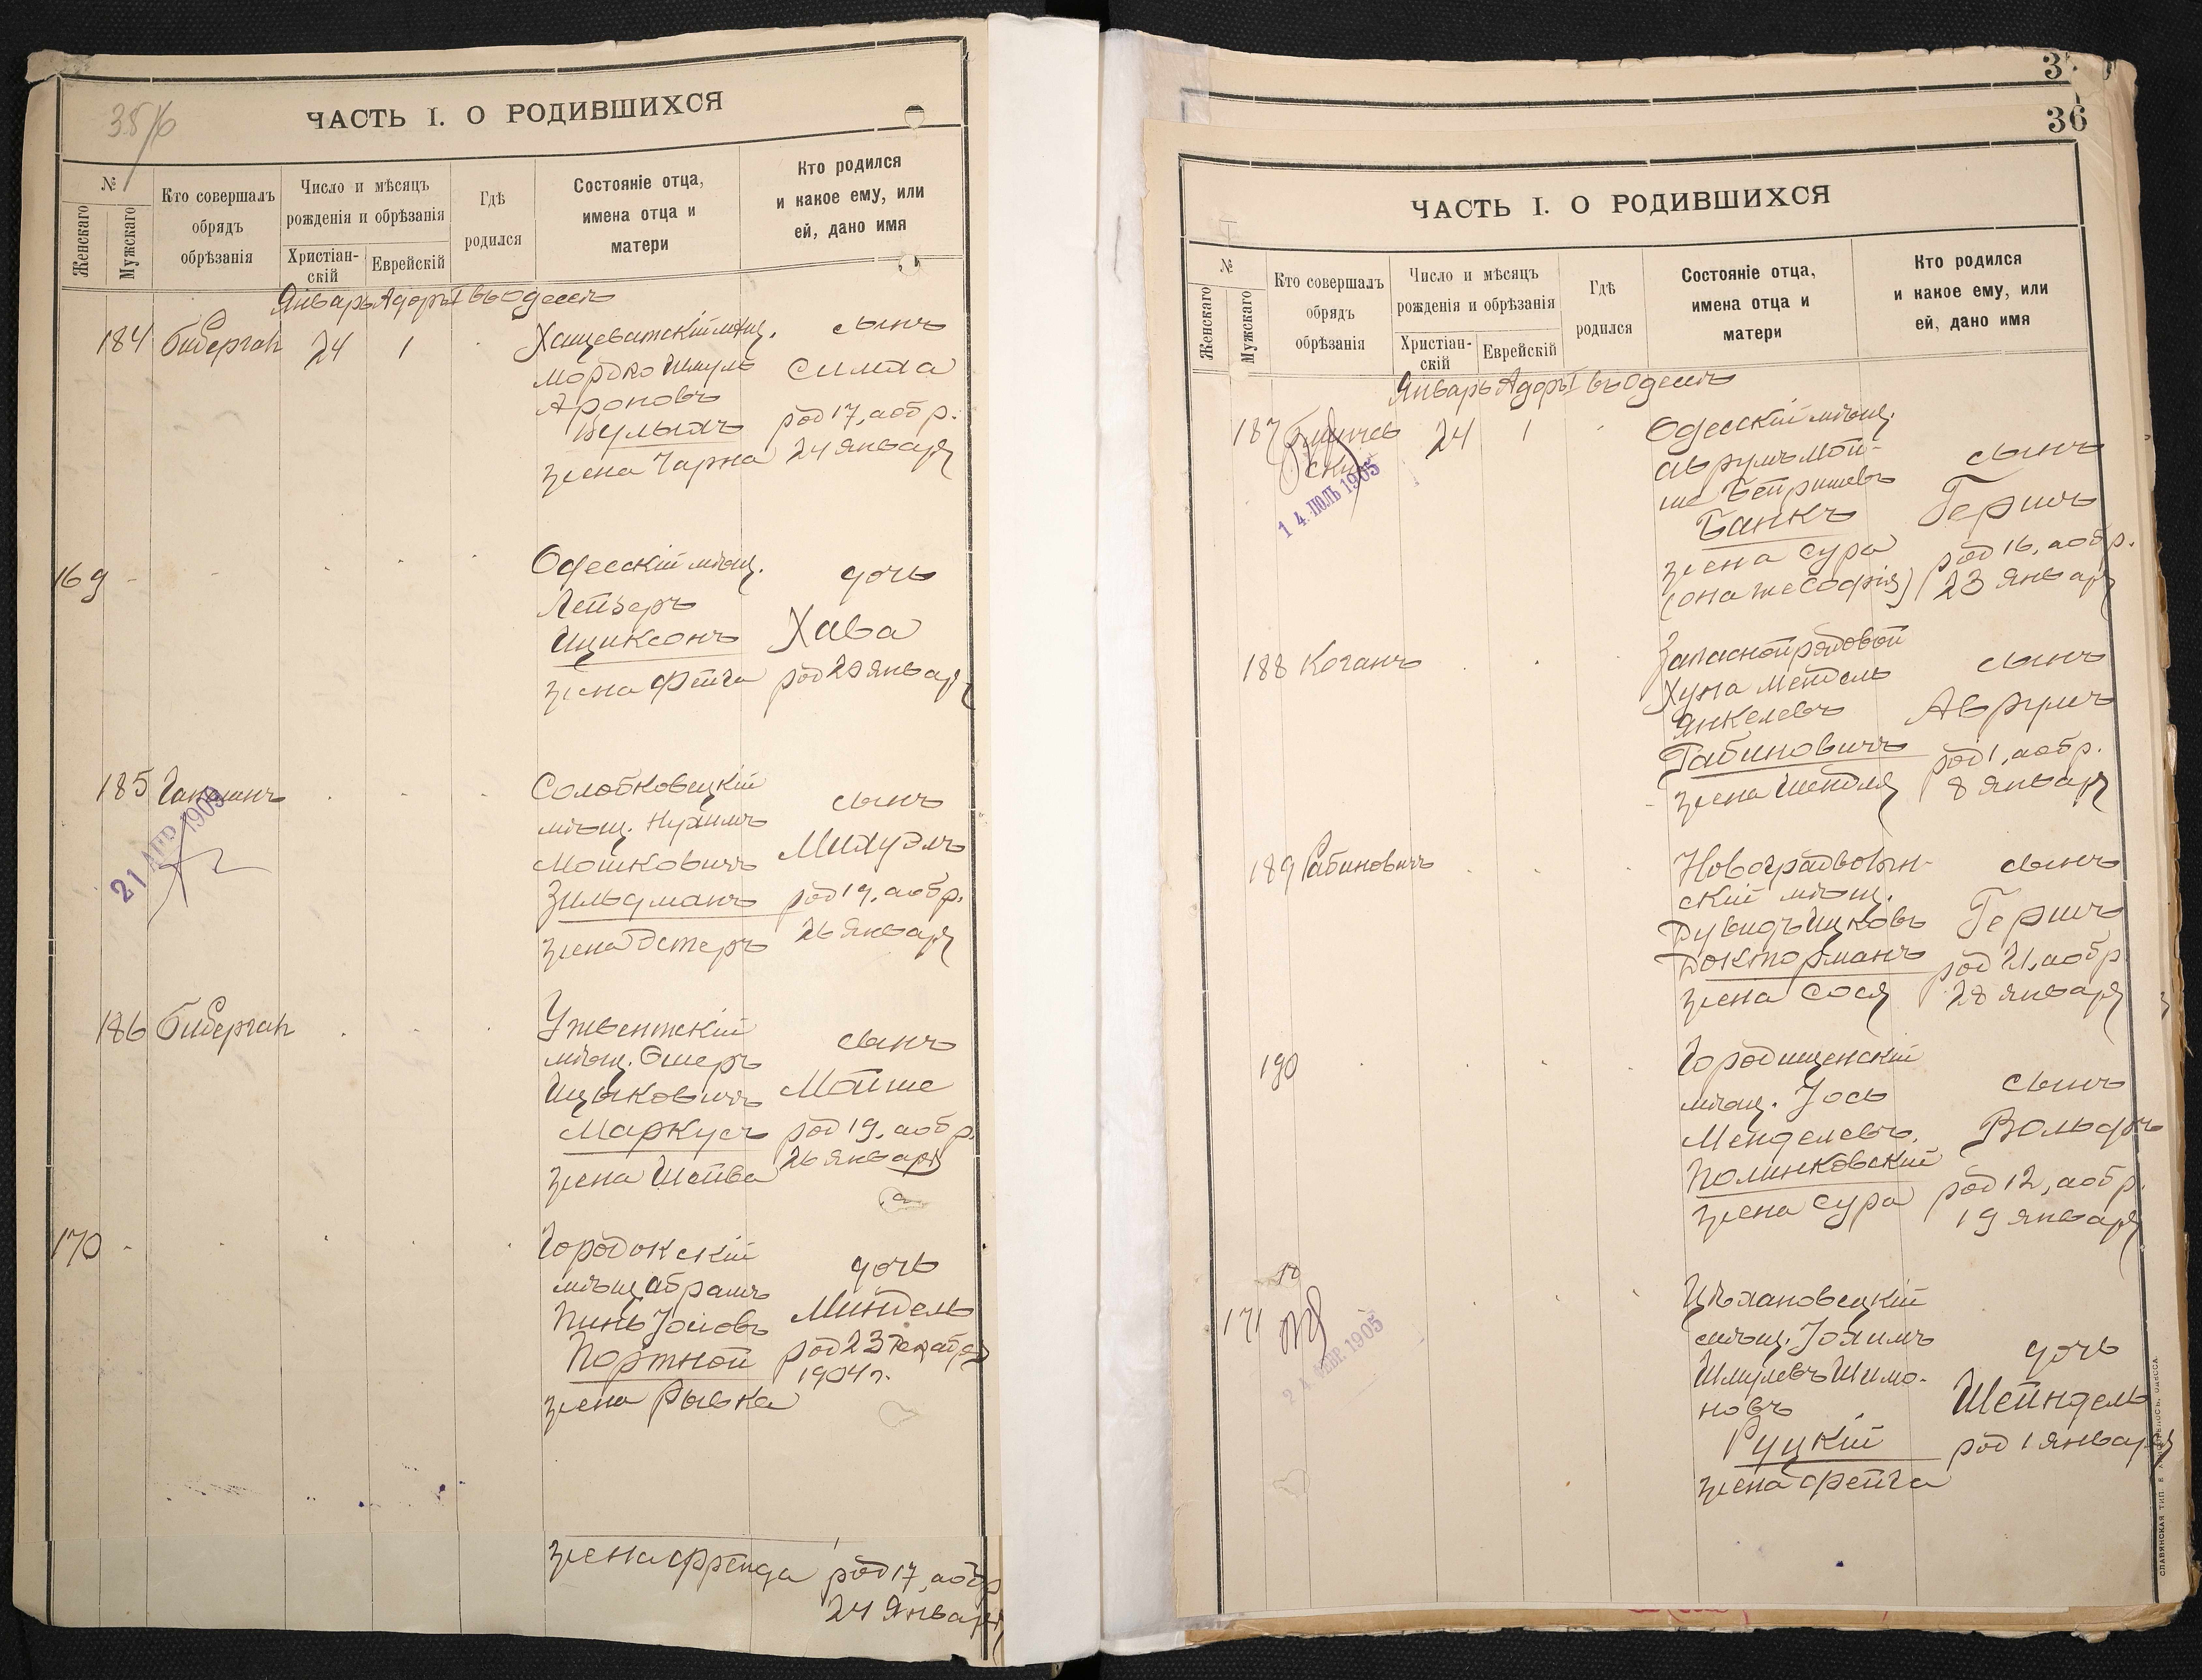 35/б
ЧАСТЬ I. О РОДИВШИХСЯ
№
Женскаго
Мужскаго
Кто совершалъ
обрядъ
обрѣзанія
Число и мѣсяцъ
рожденія и обрѣзанія
Христіан-
скій
Еврейскій
Гдѣ
родился
Состояніе отца,
имена отца и
матери
Кто родился
и какое ему, или
ей, дано имя
Январь Адоръ I въ Одессѣ
184 Биберган 24 1
Хащеватскій мѣщ.
Мордко Шмуль
Ароновъ
Булыхъ
жена Чарна
сынъ
Симха
род 17, а обр.
24 января
169
Одесскій мѣщ.
Лейзеръ
Ициксонъ
жена Фейга
дочь
Хава
род 20 января
185
21 АПР 1905
Солобковецкій
мѣщ. Нухимъ
Мошковичъ
Зильдманъ
жена Эстеръ
сынъ
Михуэлъ
род 19, а обр.
26 января
186 Биберган
Ушвентскій
мѣщ. Ошеръ
Ицыковичъ
Маркусъ
жена Шейва
сынъ
Мойше
род 19, а обр.
26 января
170
Городокскій
мѣщ Абрамъ
Пинь Іосіовъ
Портной
жена Рывка
дочь
Миндель
род 23 декабря
1904 г.
жена Френда
род 17, а обр
24 января
36
ЧАСТЬ I. О РОДИВШИХСЯ
№
Женскаго
Мужскаго
Кто совершалъ
обрядъ
обрѣзанія
Число и мѣсяцъ
рожденія и обрѣзанія
Христіан-
скій
Еврейскій
Гдѣ
родился
Состояніе отца,
имена отца и
матери
Кто родился
и какое ему, или
ей, дано имя
Январь Адоръ I въ Одессѣ
187 24 1
14 ІЮЛЬ 1905
Одесскій мѣщ.
Аврумъ Мой-
ше Бейришевъ
Банкъ
жена Сура
(она же Софія)
сынъ
Гершъ
род 16, а обр.
23 января
188 Коганъ
Запасной рядовой
Хуна Мендель
Янкелевъ
Рабиновичъ
жена Шендля
сынъ
Аврумъ
род 1, а обр.
8 января
189 Рабиновичъ
Новоградволын-
скій мѣщ.
Дувидъ Ицковъ
Докторманъ
жена Сося
сынъ
Гершъ
род 21, а обр
28 января
190
Городищенскій
мѣщ. Іось
Менделевъ
Полинковскій
жена Сура
сынъ
Вольфъ
род 12, а обр.
19 января
171
24 ФЕВР. 1905
Цѣхановецкій
мѣщ. Іохимъ
Шмулевъ Шимо-
новъ
Руцкій
жена Фейга
дочь
Шейндель
род 1 января
СЛАВЯНСКАЯ ТИП. Е. ХРИСОГЕЛОСЪ, ОДЕССА